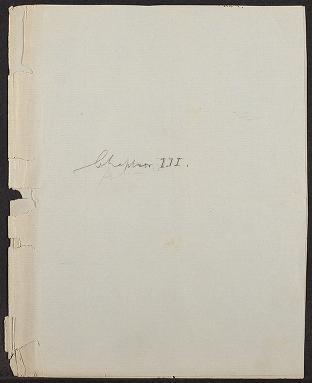 Chapter III.